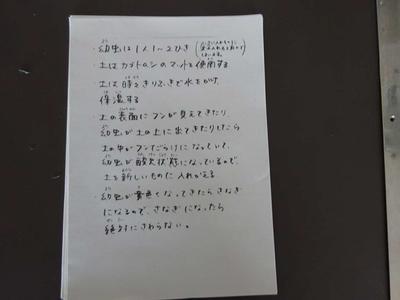 ・幼虫は1人1〜2ひき
・土はカブトムシのマットを使用する
・土は時々きりふきで水をかけ
保湿する
・土の表面にフンが見えてきたり
幼虫が土の上に出てきたりしたら
土の中がフンだらけになっていて、
幼虫が酸欠状態になっているので、
土を新しいものに入れかえる
・幼虫が黄色くなってきたらさなぎ
になるので、さなぎになったら
絶対にさわらない。